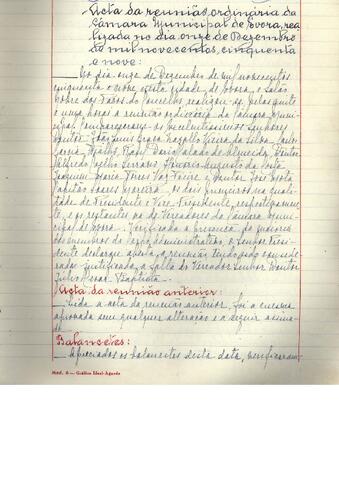 Acta da reunião ordinária da
Câmara Municipal de Evora, rea-
lizada no dia onze de Dezembro
de mil novecentos, cinquenta
e nove:
Ao dia onze de Dezembro de mil novecentos
cinquenta e nove nesta cidade de Evora, e salão
nobre dos Paços do Concelho realizou-se, pelas quinze
e uma horas a reunião ordinária da Câmara Muni-
cipal, compareceram os excelentissimos senhores
Doutor Vieira da Silva,
Garcia Raul Dario de Almeida, Doutor
Alfredo Coelho Serrano, Augusto da Costa
Joaquim Maria Vaz Freire e Doutor José
Capitão Soares Moreira, os dois primeiros na quali-
dade de Presidente e Vice-Presidente, respectivamen-
te, e os restantes na de Vereadores da Câmara Muni-
cipal de Evora. Verificada a presença da maioria
dos membros do corpo administrativo, o senhor Presi-
dente declarou aberta a reunião, tendo sido conside-
rada justificada a falta do Vereador Senhor Doutor
Julio Baptista.
Acta da reunião anterior:
Lida a acta da reunião anterior, foi a mesma
aprovada sem qualquer alteração e a seguir assina-
da.
Balancetes:
Apreciados os balancetes desta data, verificaram-
Mod. 6 — Gráfica Ideal-Agueda